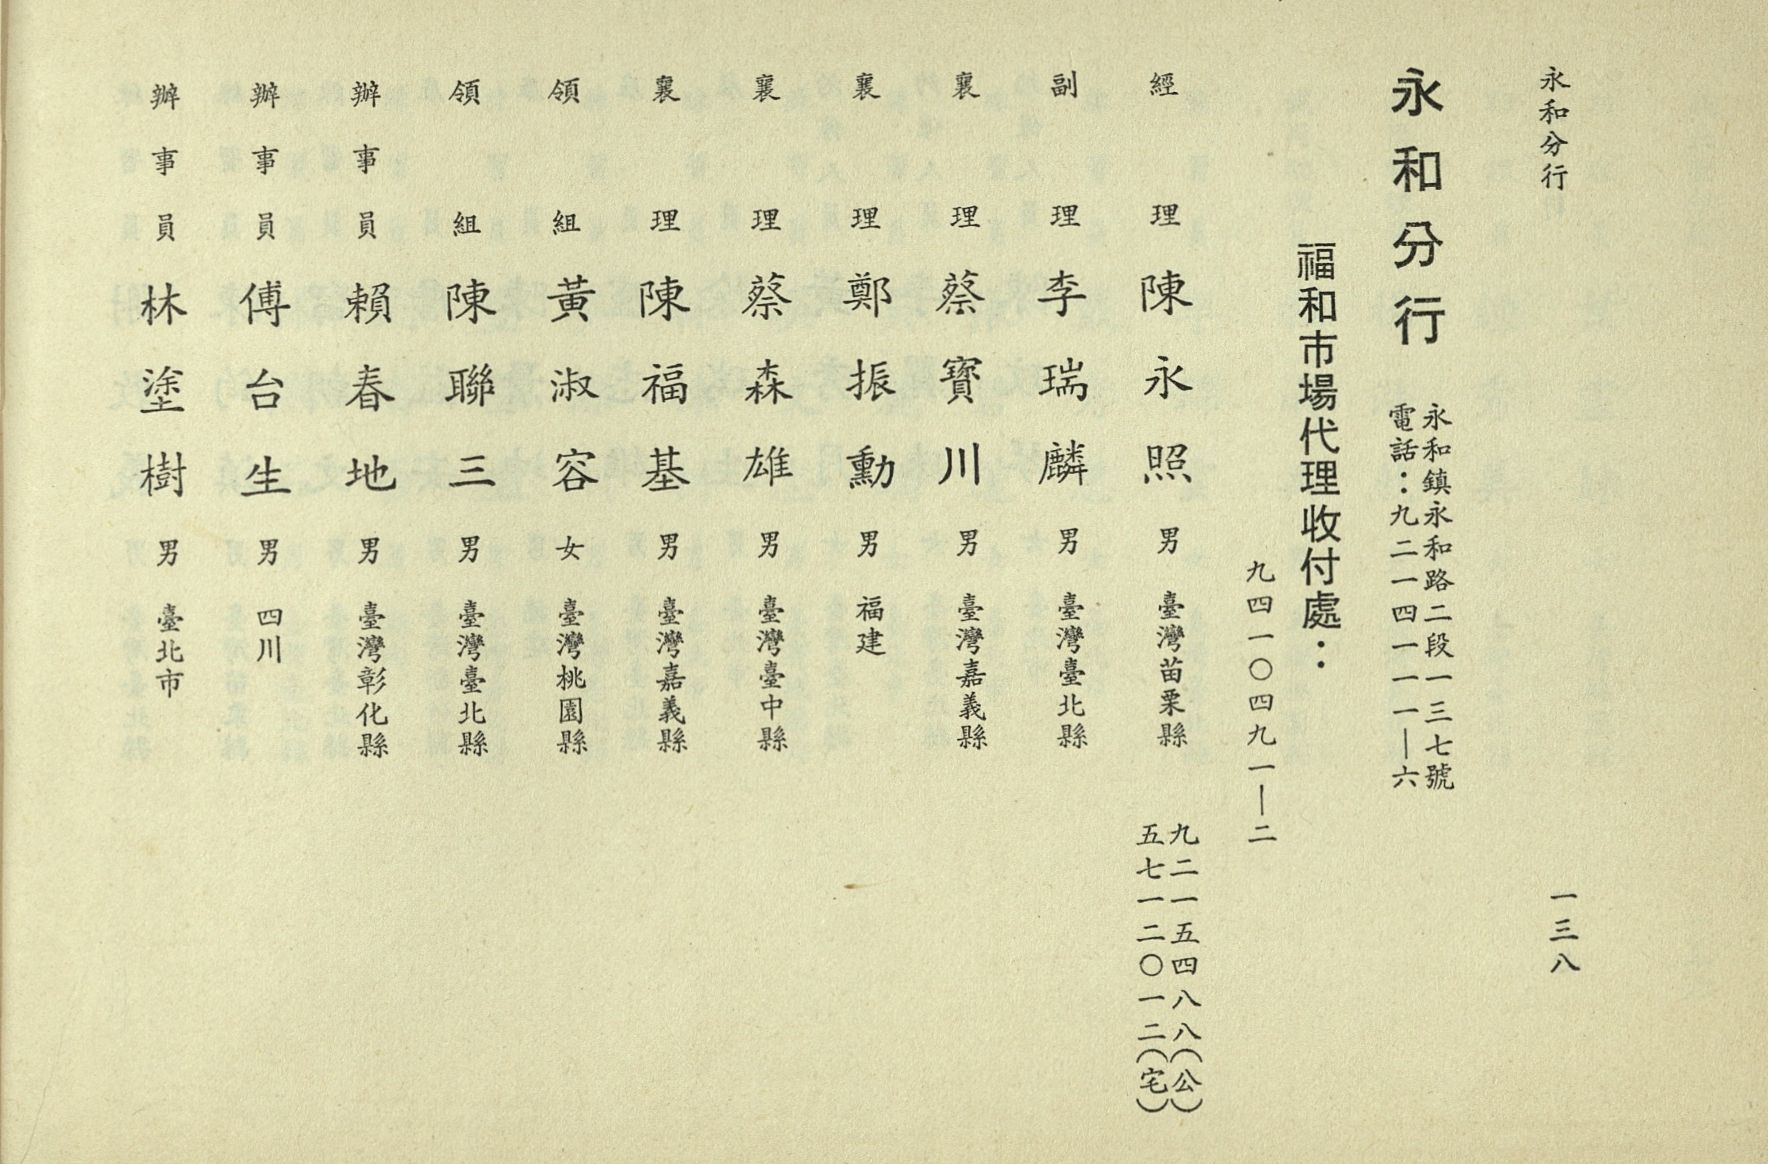 永和分行
一三八
永和分行
永和鎮永和路二段一三七號
電話：九二一四一一一—六
福和市場代理收付處：
九四一〇四九一—二
經理 陳永照 男 臺灣苗栗縣 九二一五四八八(公)
五七一二〇一二(宅)
副理 李瑞麟 男 臺灣臺北縣
襄理 蔡寶川 男 臺灣嘉義縣
襄理 鄭振勳 男 福建
襄理 蔡森雄 男 臺灣臺中縣
襄理 陳福基 男 臺灣嘉義縣
領組 黃淑容 女 臺灣桃園縣
領組 陳聯三 男 臺灣臺北縣
辦事員 賴春地 男 臺灣彰化縣
辦事員 傅台生 男 四川
辦事員 林塗樹 男 臺北市